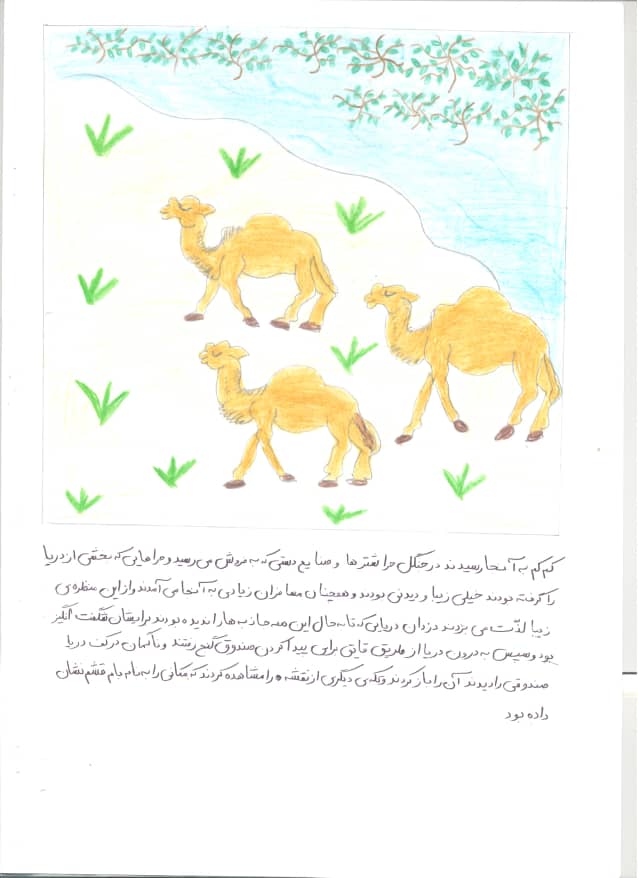 کم کم به آنجا رسیدند در جنگل حرا شترها و صنایع دستی که به فروش می رسید و حراهایی که بخشی از دریا
را گرفته بودند خیلی زیبا و دیدنی بودند و همچنان مسافران زیادی به آنجا می آمدند و از این منظره ی
زیبا لذت می بردند دزدان دریایی که تا به حال این همه جاذبه ها را ندیده بودند برایشان شگفت انگیز
بود و سپس به درون دریا از طریق قایق برای پیدا کردن صندوق گنج رفتند و ناگهان در کف دریا
صندوقی را دیدند آن را باز کردند و تکه ی دیگری از نقشه را مشاهده کردند که مکانی را به نام بام قشم نشان
داده بود